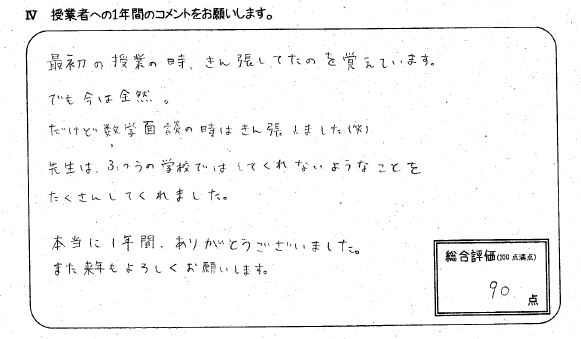 Ⅳ 授業者への1年間のコメントをお願いします。
最初の授業の時、きん張してたのを覚えています。
でも今は全然。
だけど数学面談の時はきん張しました(笑)
先生は、ふつうの学校ではしてくれないようなことを
たくさんしてくれました。
本当に1年間、ありがとうございました。
また来年もよろしくお願いします。
総合評価(100点満点)
90 点